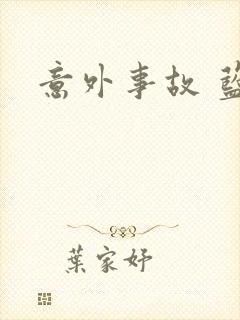 意外事故
葉家妤